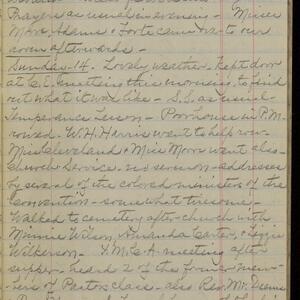 Prayers as usual in evening - Misses
Moore, Adams & Foote came over to our
room afterwards -
Sunday - 14. Lovely weather. Kept door
at C.E. meeting this morning, to find
out what it was like - S.S. as usual
Temperance lesson - Poorhouse in P.M.
rained. W.H. Harris went to help row.
Miss Cleveland & Miss Moore went also -
Church Service - no sermon - addresses
by several of the colored ministers of the
Convention - somewhat tiresome -
Walked to cemetery after church with
Minnie Wilson, Amanda Carter, & Lizzie
Wilkerson - Y.M.C.A. meeting after
supper - heard 2 of the former mem-
bers of Pastor's class - also Rev. Mr.